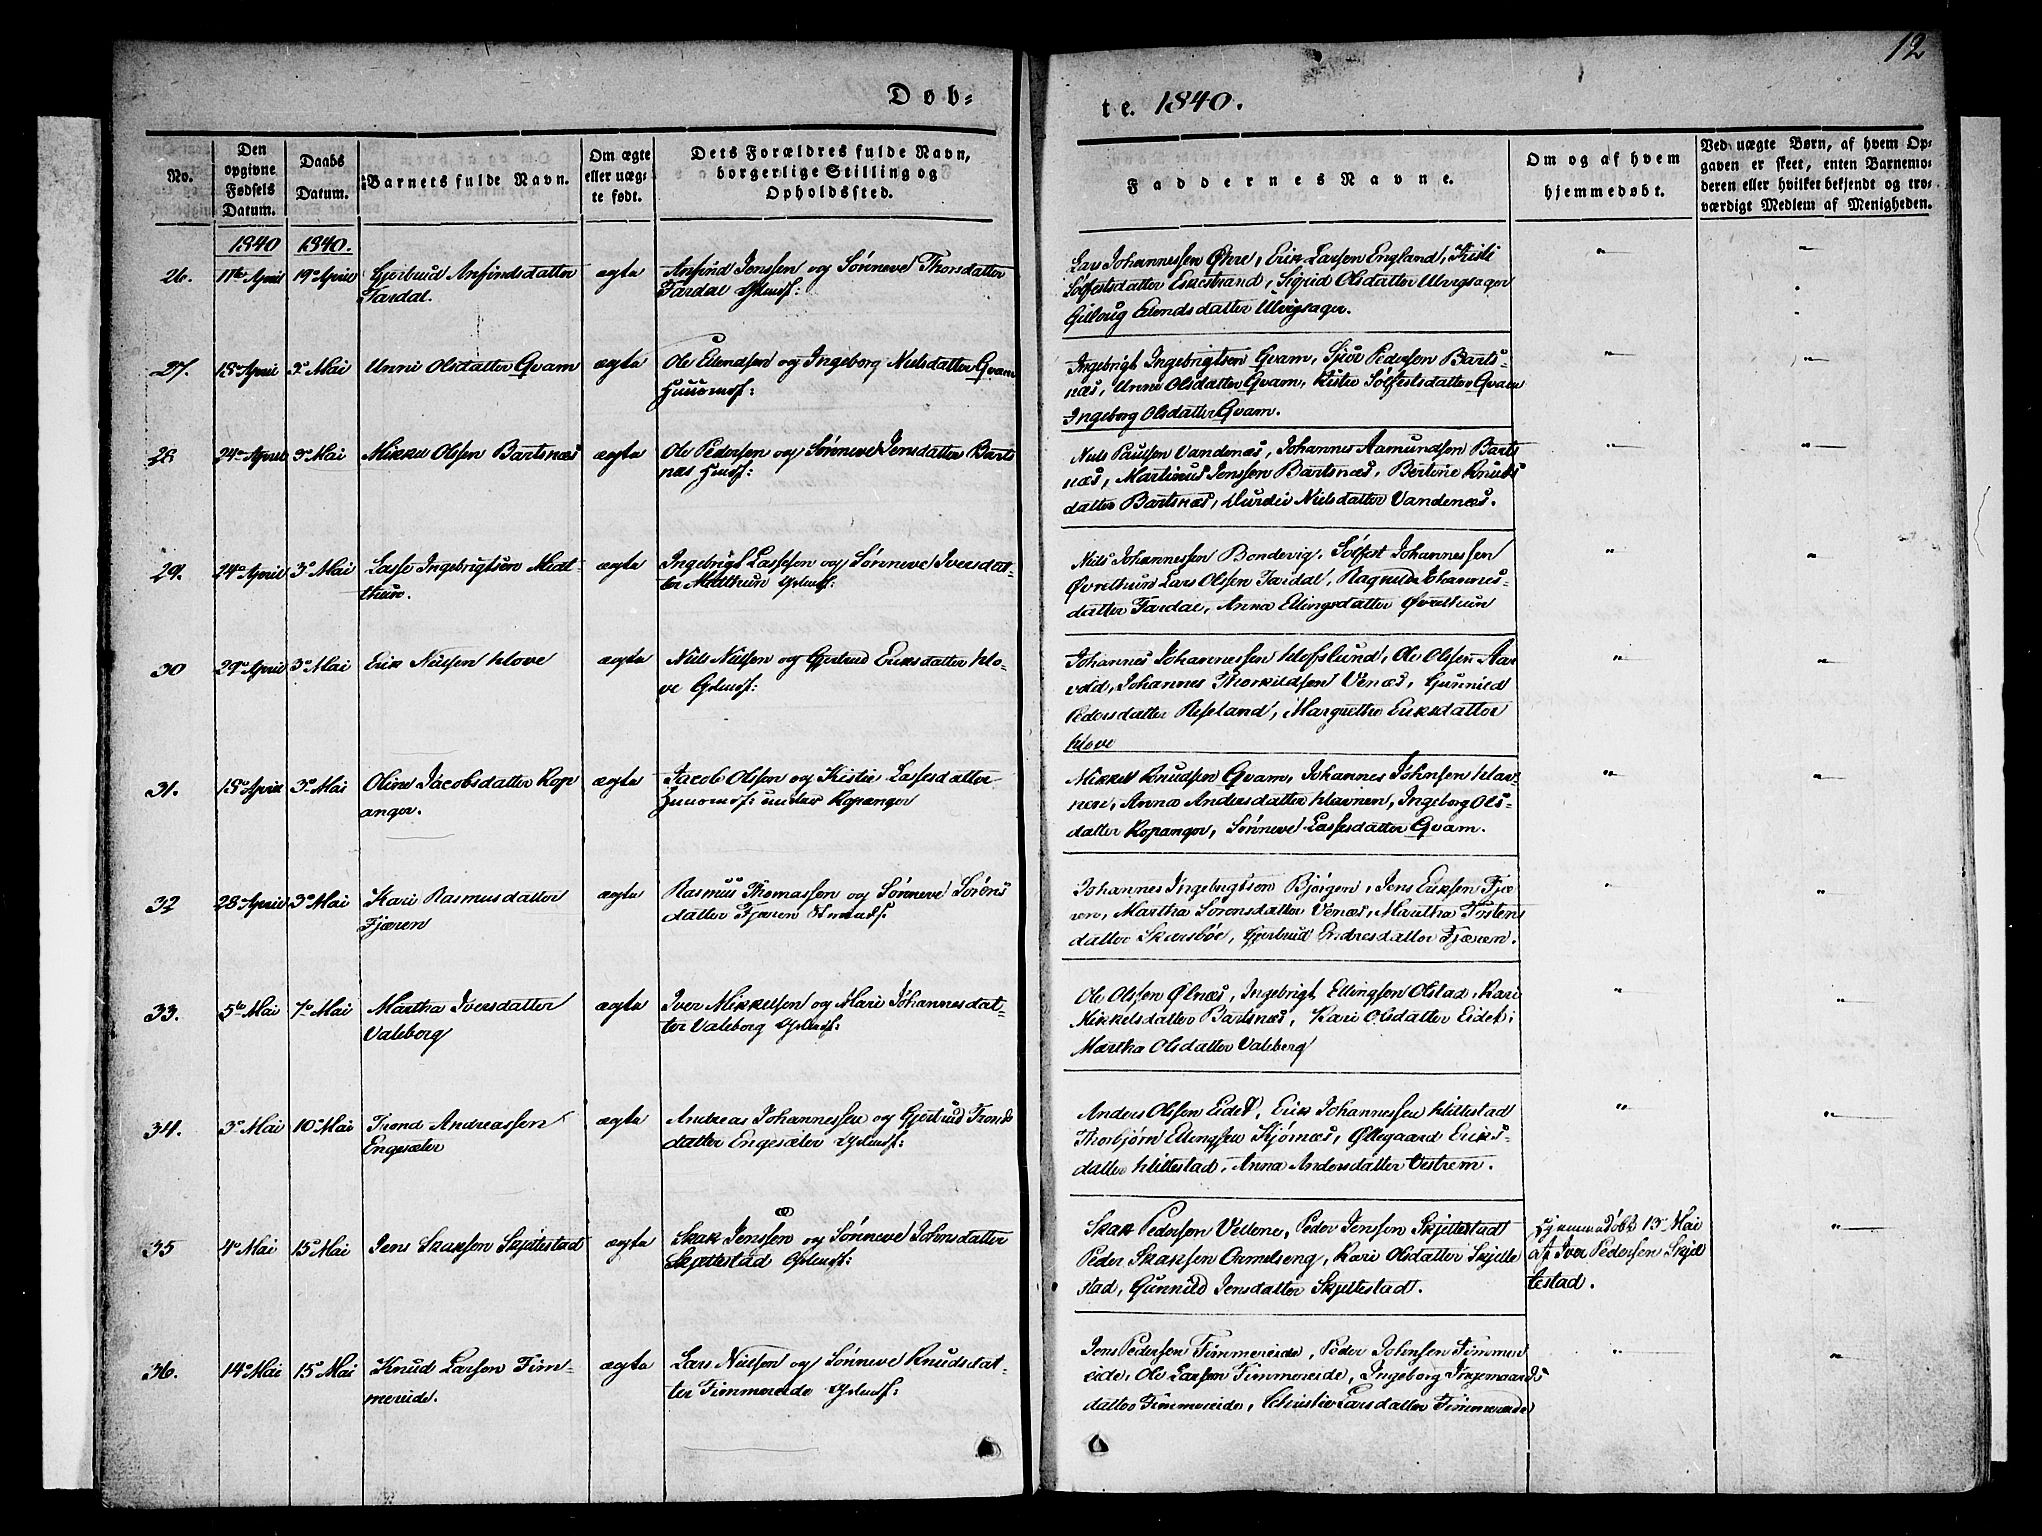 12
Døb-
te. 1840.
No.
Den opgivne Fødsels Datum.
Daabs Datum.
Barnets fulde Navn.
Om ægte eller uægte født.
Dets Forældres fulde Navn, borgerlige Stilling og Opholdssted.
Faddernes Navne.
Om og af hvem hjemmedøbt.
Ved uægte Børn, af hvem Opgaven er skeet, enten Barnemoderen eller hvilket bekjendt og troværdigt Medlem af Menigheden.
1840 1840.
26. 11te April 19de April Gjertrud Anfindsdatter ægte Anfind Jenssen og Sønneve Thorsdatter
Fardal. Fardal Gdmdf:
Lars Johannessen Øhre, Erik Larssen England, Kisti
Sølfestsdatter Eskestrand, Sigrid Olsdatter Ulvigsager
Erlendsdatter Ulvigsager.
27. 18de April 3de Mai Unni Olsdatter Qvam ægte Ole Erlendsen og Ingeborg Nielsdatter Qvam
Huusmdf:
Ingebrigt Ingebrigtsen Qvam, Sjur Pedersen Barts-
næs, Unni Olsdatter Qvam, Kistie Sølfestsdatter Qvam
Ingeborg Olsdatter Qvam.
28 24de April 3de Mai Mikkel Olssen Bartsnæs ægte Ole Pedersen og Sønneve Jensdatter Barts
næs Huusmdf:
Niels Paulsen Vandenæs, Johannes Aamundsen Barts
næs, Martinus Jenssen Bartsnæs, Bertine Knuds
datter Bartsnæs, Nielsdatter Vandenæs.
29. 24de April 3de Mai Lasse Ingebrigtsen Midt- ægte Ingebrigt Lassesen og Sønneve Iversdat-
thun. ter Midthun Gdmdf:
Niels Johannessen Bondevig, Sølfest Johannessen
Øvrethun Lars Olssen Fardal, Ragnild Johannes-
datter Fardal, Anna Ellingsdatter Øvrethun
30 29de April 3de Mai Erik Nielsen Kløve ægte Niels Nielsen og Gjertrud Eriksdatter Klø-
ve Gdmdf:
Johannes Johannessen Hofslund, Ole Olssen Aa-
vold, Johannes Thorkildsen Venæs, Gunnild
Pedersdatter Riseland, Margrethe Eriksdatter
Kløve
31. 18de April 3de Mai Oline Jacobsdatter Kop ægte Jacob Olssen og Kistie Lassesdatter
anger. Huusmdf: under Kopanger
Mikkel Knudsen Qvam, Johannes Johnsen Hav-
nen, Anna Andersdatter Havnen, Ingeborg Ols-
datter Kopanger, Sønneve Lassesdatter Qvam.
32 28de April 3de Mai Kari Rasmusdatter ægte Rasmus Thomassen og Sønneve Sørens
Fjæren datter Fjæren
Johannes Ingebrigtsen Bjørgen, Jens Eriksen Fjæ
ren, Martha Sørensdatter Venæs, Martha
datter Skarsbøe, Gjertrud Endresdatter Fjæren.
33. 5te Mai 7de Mai Martha Iversdatter ægte Iver Mikkelsen og Mari Johannesdat-
Valeborg ter Valeborg Gdmdf:
Ole Olssen Ølnæs, Ingebrigt Ellingsen Olstad, Kari
Mikkelsdatter Bartsnæs, Kari Olsdatter Eidet;
Martha Olsdatter Valeborg
34. 3de Mai 10de Mai Trond Andreassen ægte Andreas Johannessen og Gjertrud Tronds
Engesæter datter Engesæter Gdmdf:
Anders Olssen Eidet, Erik Johannessen Hillestad
Thorbjørn Ellingsen Kjørnæs, Øllegaard Eriks-
datter Hillestad, Anna Andersdatter Vestrem.
35 4de Mai 15de Mai Jens Skaksen Skjeldestad ægte Skak Jenssen og Sønneve Johnsdatter
Skjeldestad Gdmdf:
Skak Pedersen Vellene, Peder Jenssen Skjeldestad
Peder Skaksen Ormelseng, Kari Olsdatter Skjelde
stad, Gunnild Jensdatter Skjeldestad.
Hjemmedøbt 13de Mai
af Iver Pedersen Skjel
destad.
36. 14de Mai 15de Mai Knud Larsen Tim- ægte Lars Nielsen og Sønneve Knudsdat-
mereide. ter Timmereide Gdmdf:
Jens Pedersen Timmereide, Peder Johnsen Timmer
eide, Ole Larsen Timmereide, Ingeborg Ingemaards
datter Timmereide, Christie Larsdatter Timmereide